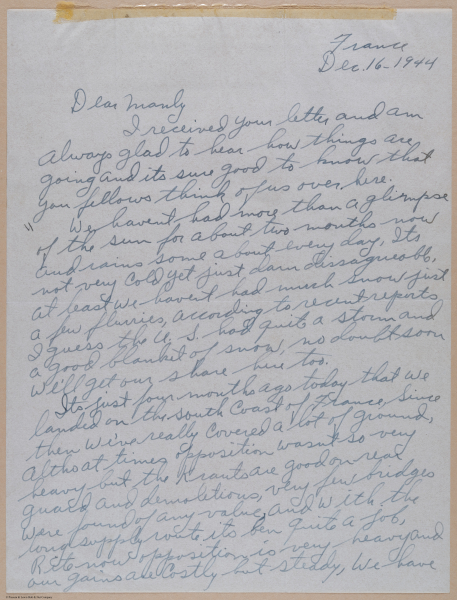 France
Dec. 16-1944
Dear Manly
I received your letter and am
always glad to hear how things are
going and its sure good to know that
you fellows think of us over here.
" We havent had more than a glimpse
of the sun for about two months now
and rains some about every day, Its
not very cold yet just darn dissagreeable,
at least we havent had much snow just
a few flurries, according to recent reports
I guess the U. S. had quite a storm and
a good blanket of snow, no doubt soon
we'll get our share here too.
Its just four months ago today that we
landed on the south Coast of France since
then wéve really covered a lot of ground,
altho at times opposition wasnt so very
heavy but the Krauts are good on rear
guard and demolitions, very few bridges
were found of any value, and with the
long supply route its ben quite a job,
to now opposition is very heavy and
our gains are costly but steady, We have